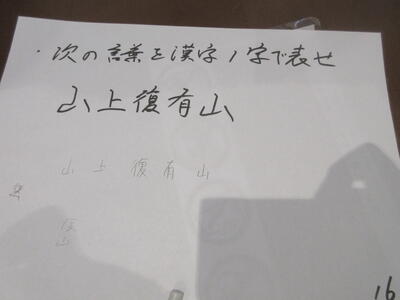 ・次の言葉を漢字1字で表せ
山上復有山
山上復有山
16